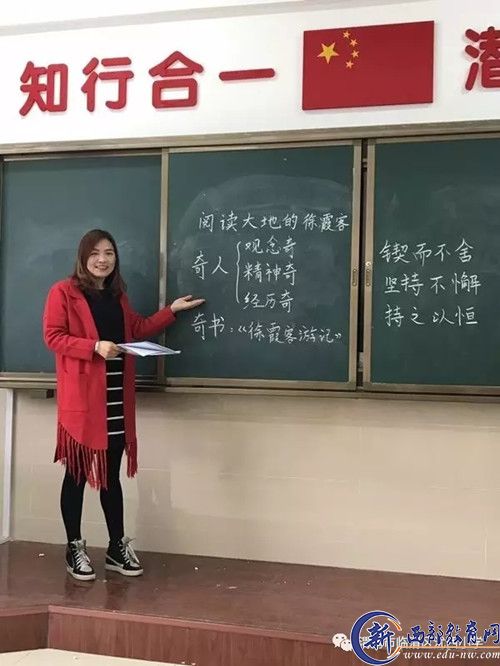 知行合一
阅读大地的徐霞客
奇人
观念奇
精神奇
经历奇
奇书:《徐霞客游记》
锲而不舍
坚持不懈
持之以恒
新 西部教育网
www.edu-nw.com